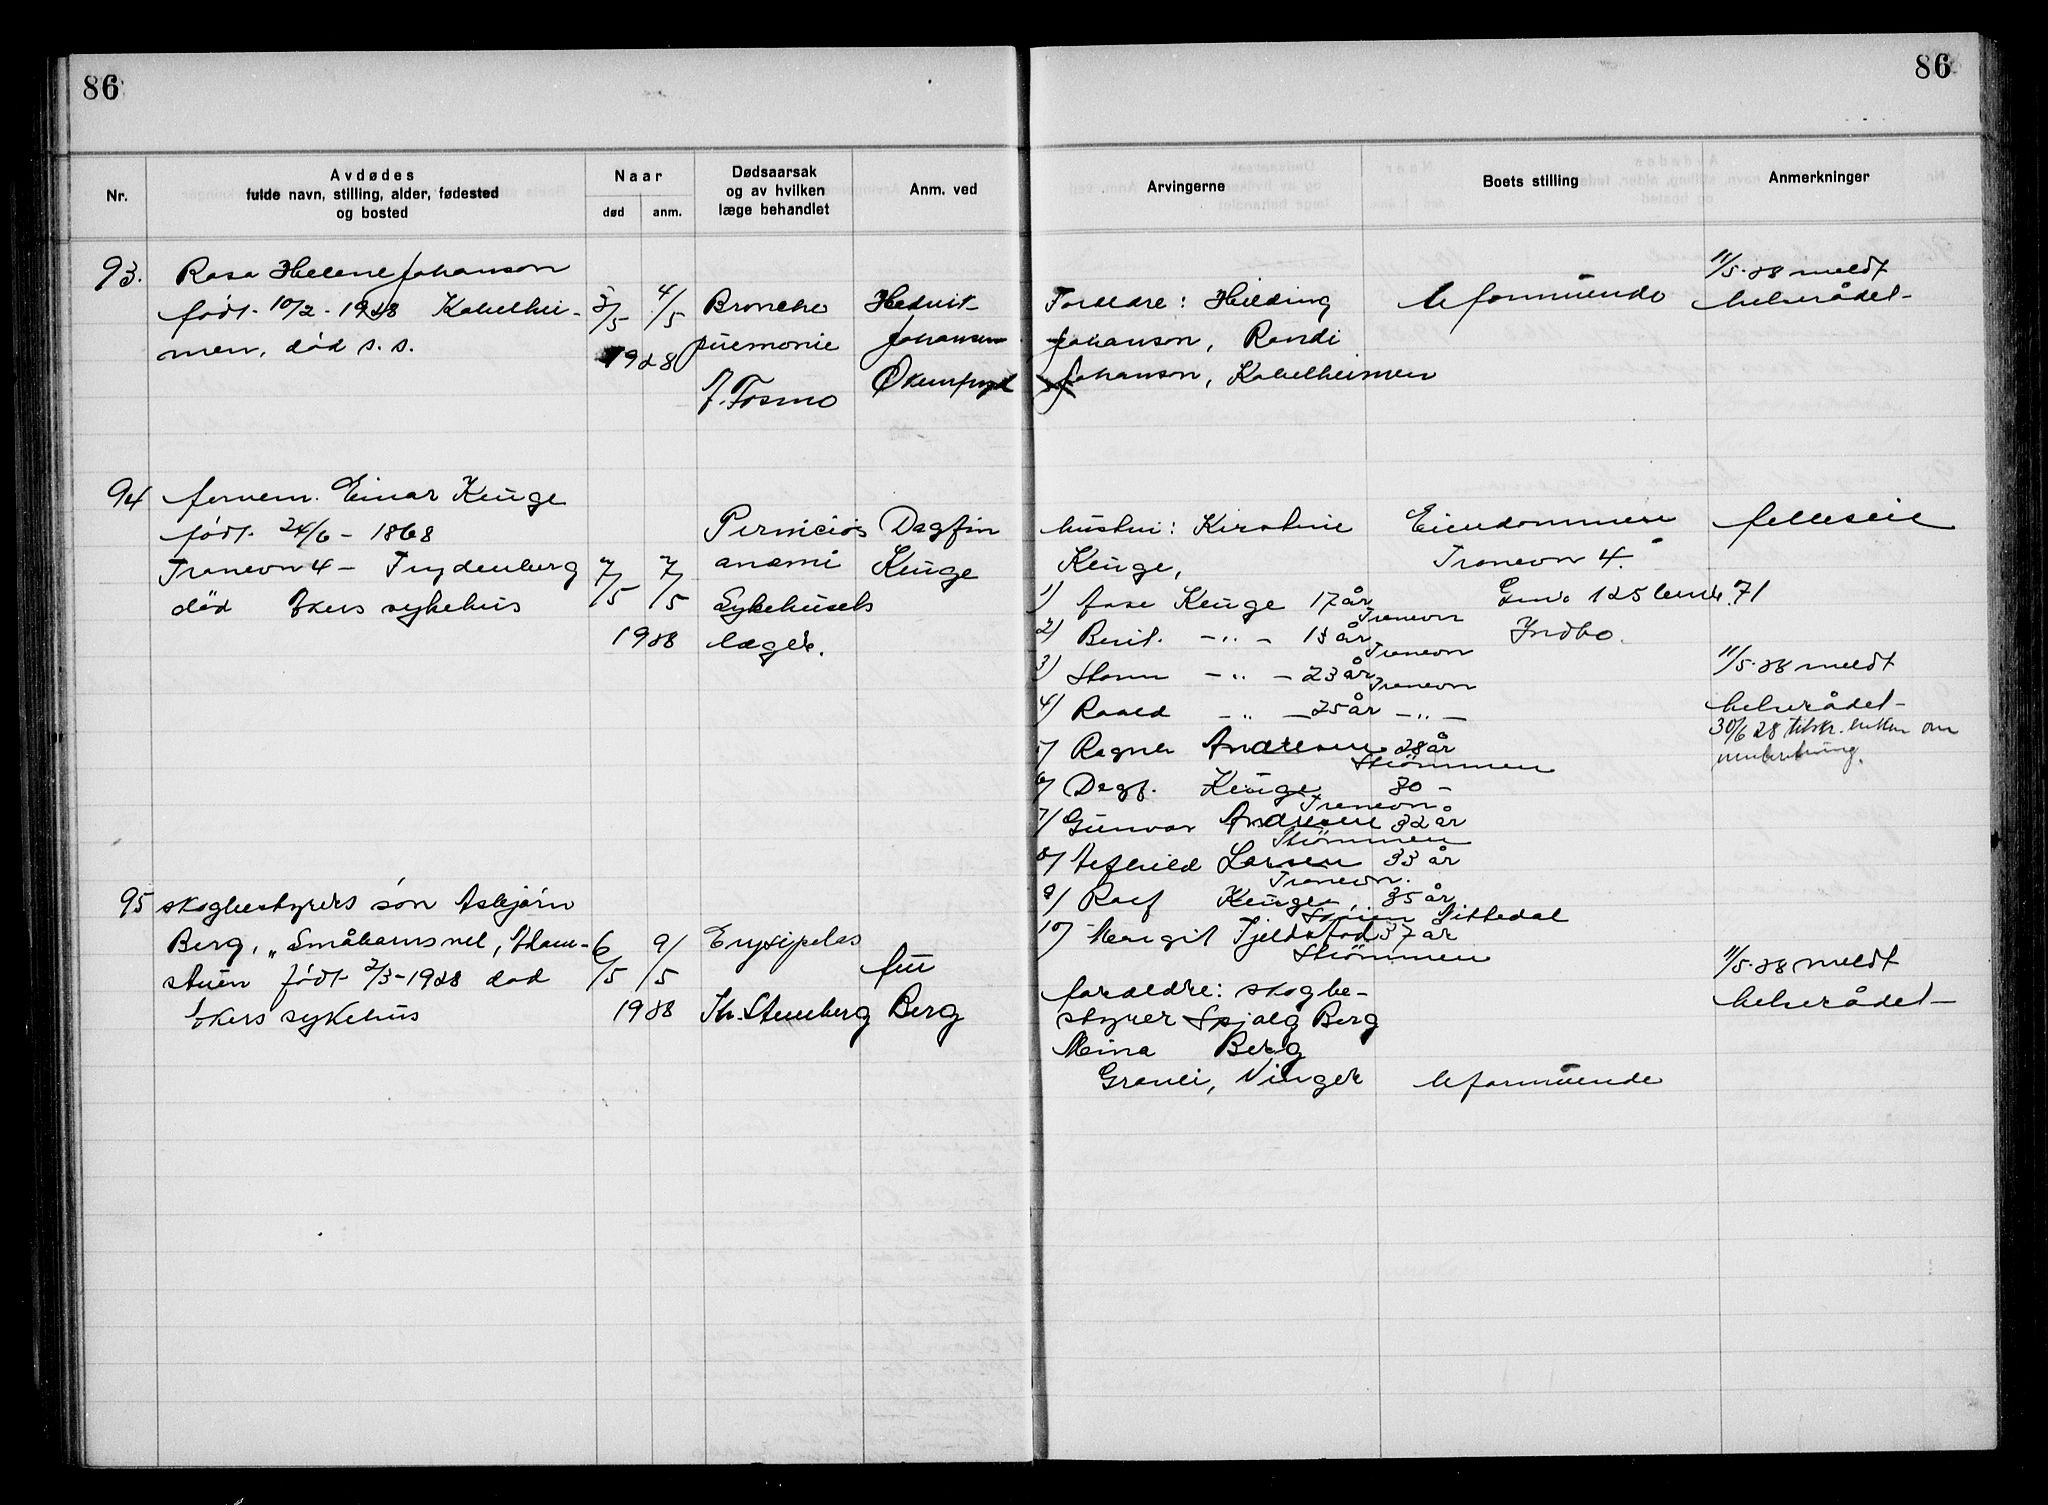 86
86
Nr.
Avdødes
fulde navn, stilling, alder, fødested
og bosted
Naar
død
anm.
Dødsaarsak
og av hvilken
læge behandlet
Anm. ved
Arvingerne
Boets stilling
Anmerkninger
93.
Rosa Helene Johanson
født 10/2 - 1928 Kabelhei-
men, død s. s.
3/5 4/5
1928
Broncho
pnemonie
J. Tosmo
Hedvil
Johansen
Økernfryd
Foreldre: Hilding
Johanson, Randi
Johanson, Kabelheimen
Uformuende
11/5-28 meldt
helserådet
94
Einar Kruge
født 24/6 - 1868
Tranevn 4 - Frydenberg
død Akers sykehus
7/5 7/5
1928
Perniciøs
anæmi
Sykehusets
læger.
Dagfin
Kruge
hustru: Kirstine
Kruge,
1) Aase Kruge 17 år
Tranevn
2) Berit -"- 13 år
Tranevn
3) -"- 23 år
Tranevn
4) Roald -"- 25 år -"-
5) Ragna Andresen 28 år
Strømmen
6) Dagf. Kruge 30 -
Tranevn.
7) Gunvor Andresen 32 år
Strømmen
8) Alfhild Larsen 33 år
Tranevn.
9) Rolf Kruge, 35 år
Nittedal
10) Margit Fjeldstad 37 år
Strømmen
Eiendommen
Tranevn 4.
Gno. 125 71
Indbo.
felleseie
11/5-28 meldt
helserådet
30/6 28 tilskr. enken om
95
skogbestyrers søn Asbjørn
Berg, "Småbarnsvel,
født 2/3-1928 død
Akers sykehus
6/5 9/5
1928
Erysipelas
Th. Stenberg
fru
Berg
foreldre: skogbe-
styrer Berg
Mina Berg
Vinger
Uformuende
11/5-28 meldt
helserådet